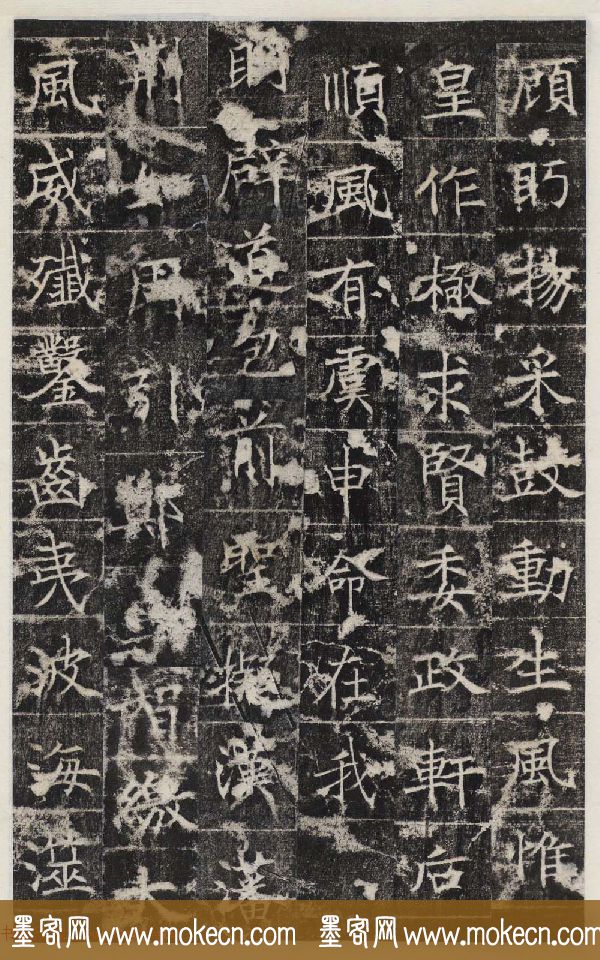 顧眄揚采鼓動生風惟
皇作極求賢委政軒后
順風有虞申命在我
明辟道邁前聖擬漢藩
荆如周引鄭 智繳大
風威殲鑿齒夷波海濨
墨客网 www.mokecn.com 墨客网 www.mokecn.com